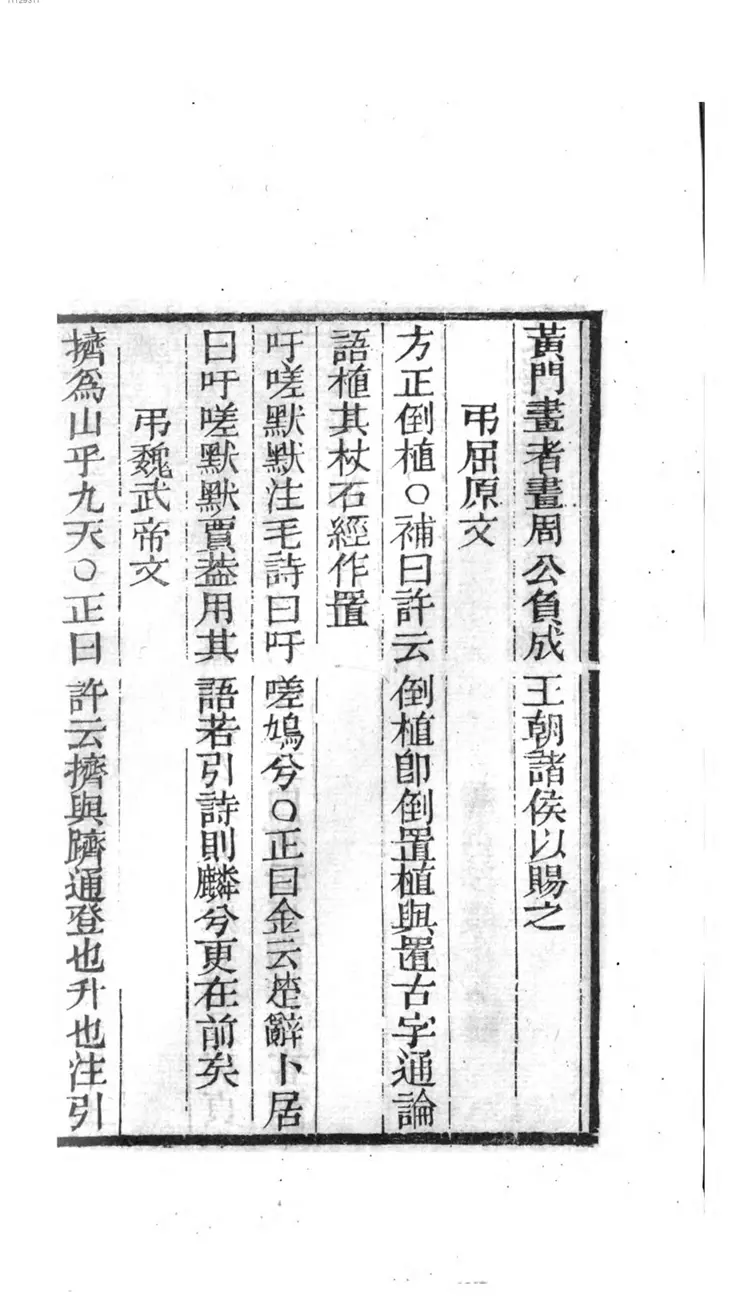 黃門畫者畫周公負成王朝諸侯以賜之
弔屈原文
方正倒植○補曰許云倒植卽倒置植與置古字通論
語植其杖石經作置
吁嗟默默注毛詩曰吁嗟鳩兮○正曰金云楚辭卜居
曰吁嗟默默賈葢用其語若引詩則麟兮更在前矣
弔魏武帝文
擠爲山乎九天○正曰許云擠與躋通登也升也注引